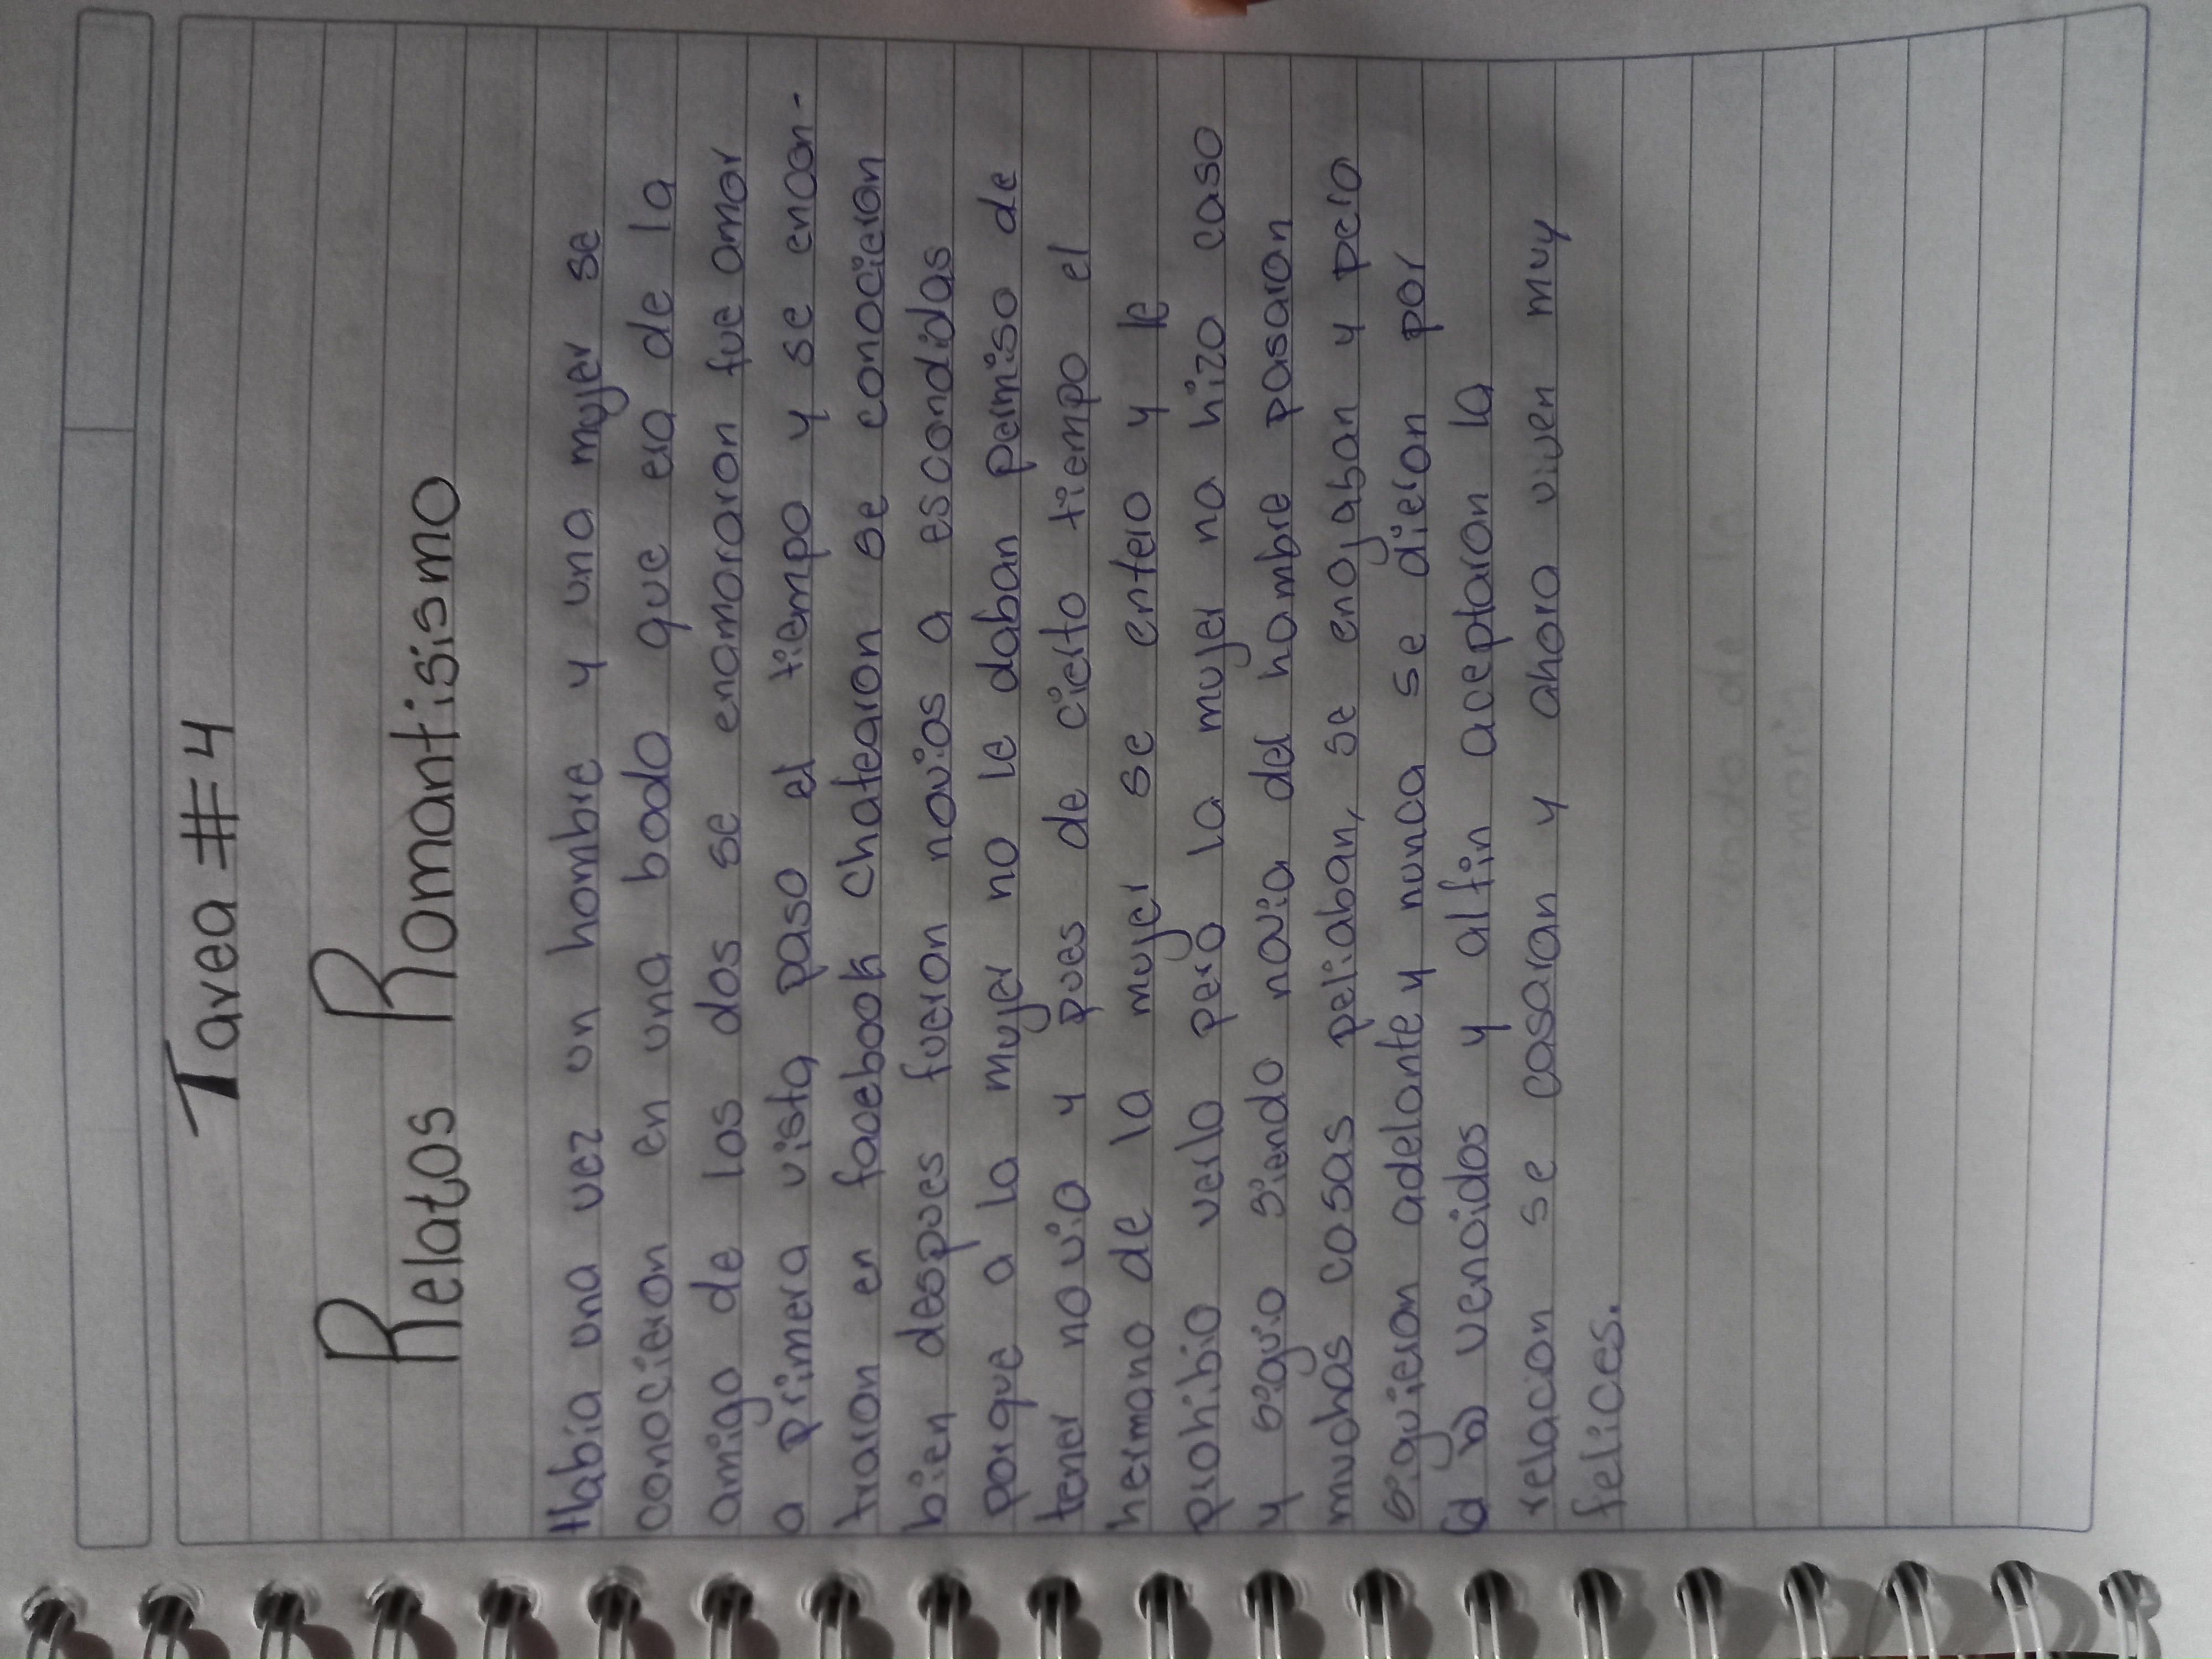 Tarea #4
Relatos Romantisismo
Habia una vez un hombre y una mujer se
conocieron en una boda que era de la
amigo de los dos se enamoraron fue amor
a primera vista paso el tiempo y se encon-
traron en facebook chatearon se conocieron
bien despues fueron novios a escondidas
porque a la mujer no le daban permiso de
tener novio y pues de cierto tiempo el
hermano de la mujer se entero y le
prohibio verlo pero la mujer no hizo caso
y siguio siendo novia del hombre pasaron
muchas cosas peliaban, se enojaban y pero
siguieron adelante y nunca se dieron por
vencidos y al fin aceptaron la
relacion se casaron y ahora viven muy
felices.